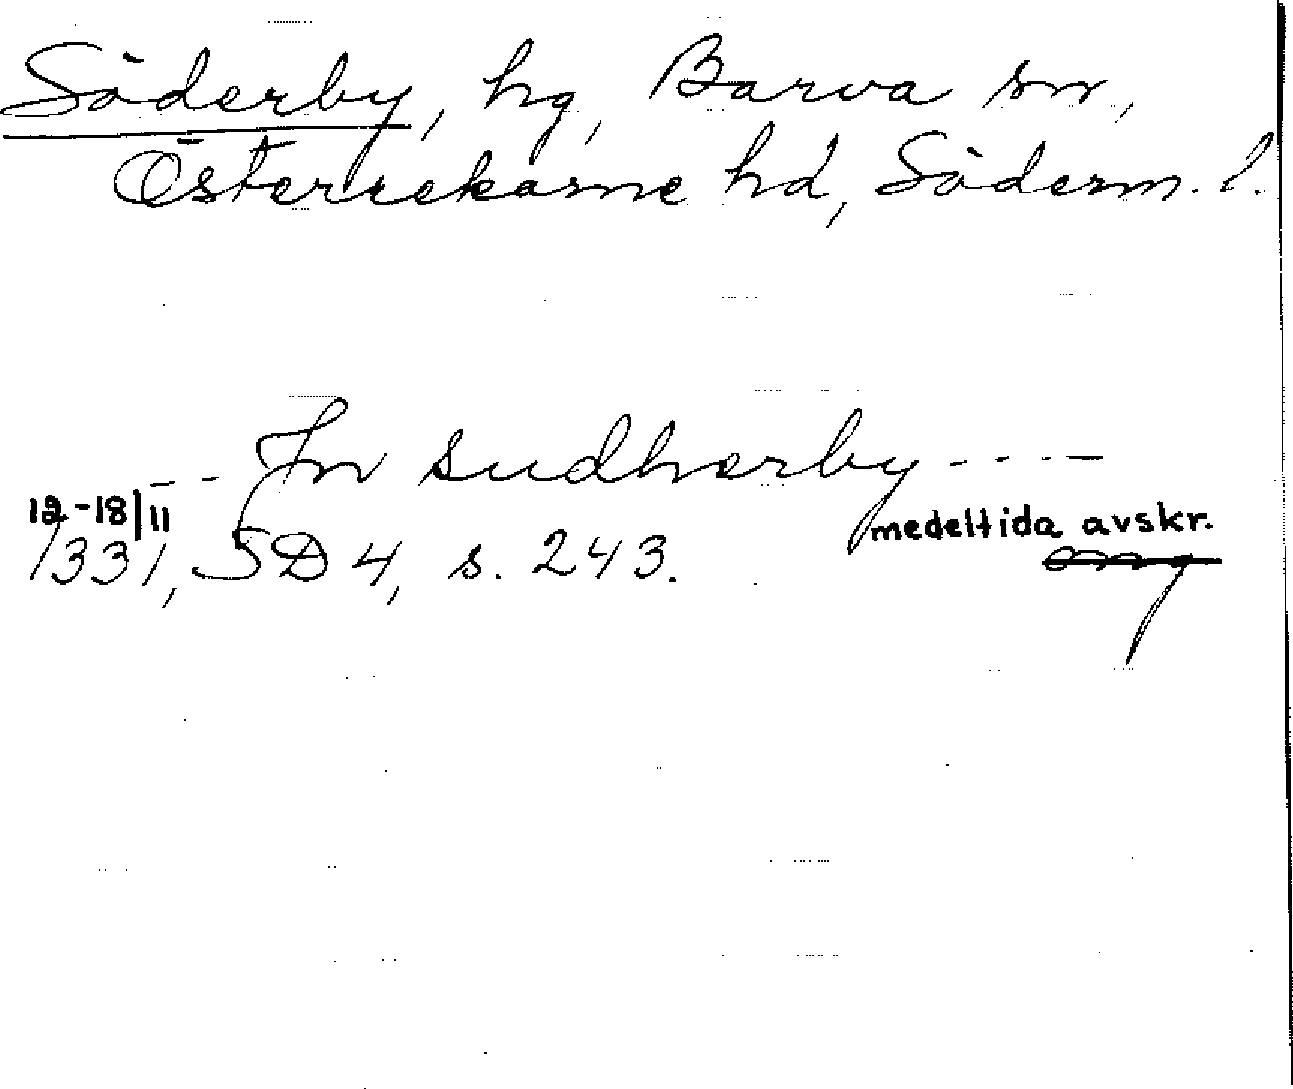 Söderby, hg, Barva sn,
Österrekarne hd, Söderm. l.
--- Jn sudherby ----
12-18/11 medeltida avskr.
1331, SD 4, s. 243.